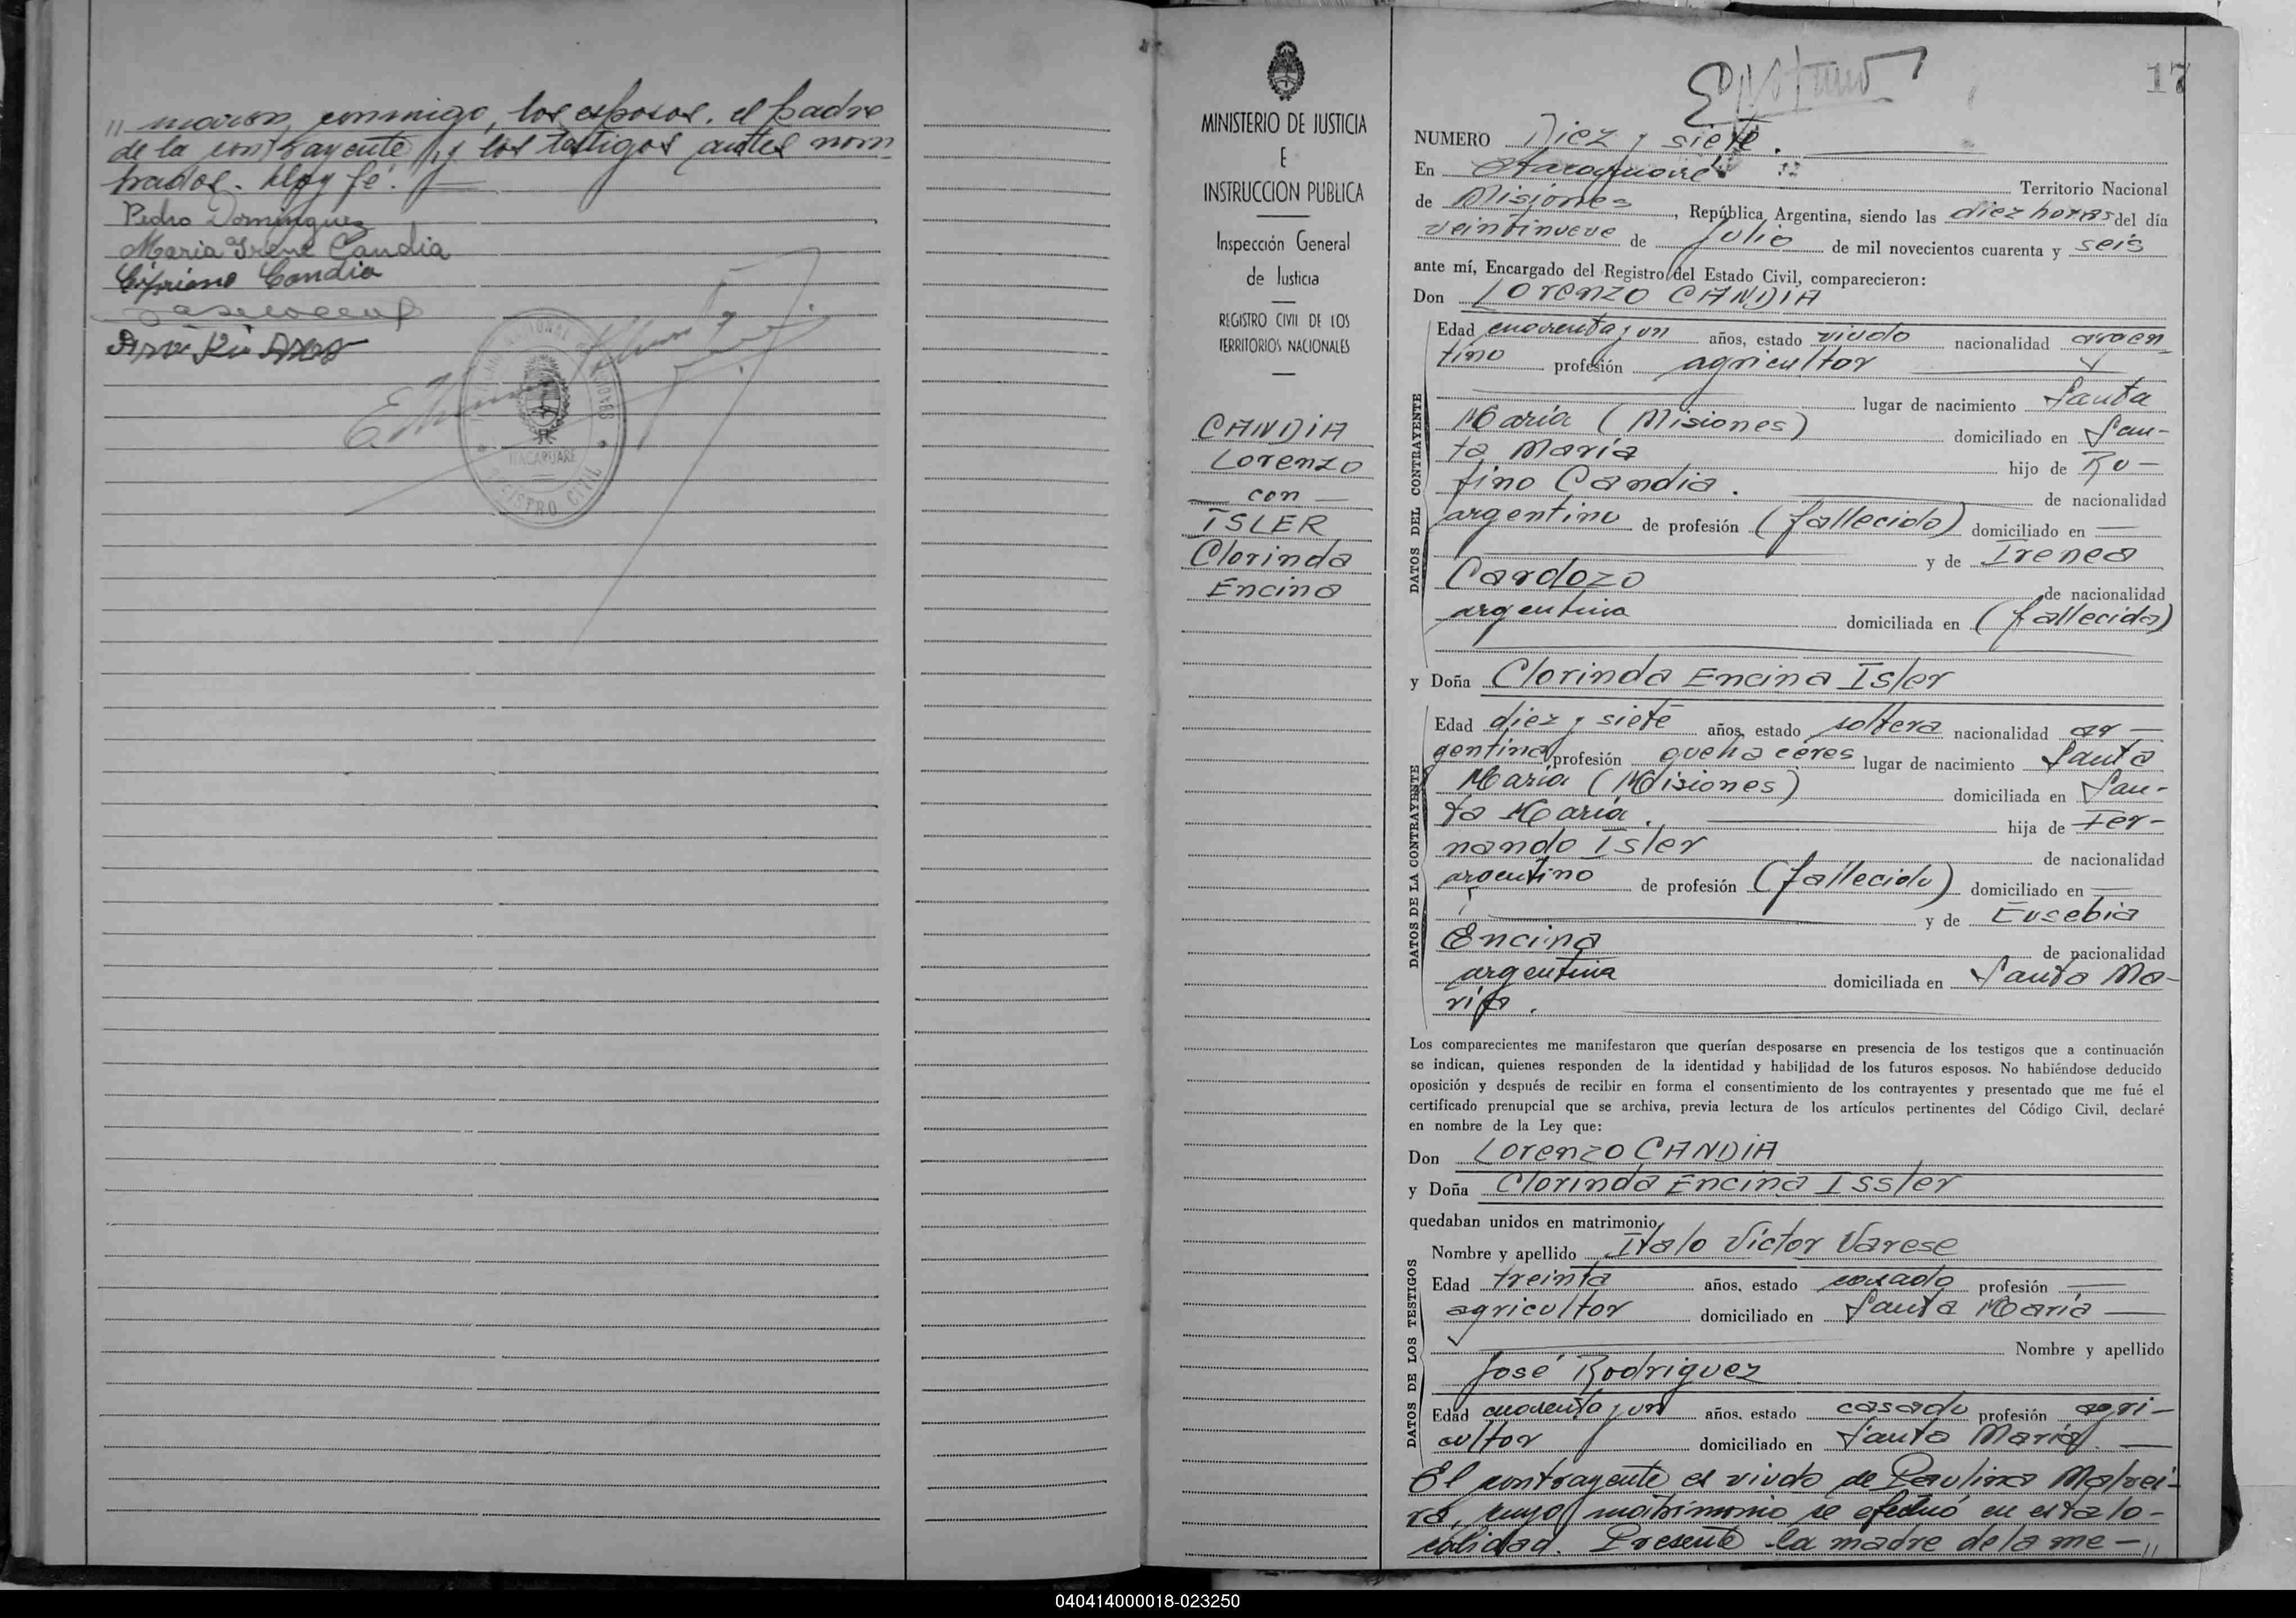 " maron, conmigo, los esposos, el padre
de la contrayente, y los testigos antes nom
brados. Doy fé.
Pedro Dominguez
Maria Irene Candia
Cipriano Candia
REGISTRO CIVIL
ITACARUARE
MINISTERIO DE JUSTICIA
E
INSTRUCCION PUBLICA
Inspección General
de Justicia
REGISTRO CIVIL DE LOS
TERRITORIOS NACIONALES
CANDIA
Lorenzo
con
ISLER
Clorinda
Encina
17
NUMERO Diez y siete.
En Itacaruaré Territorio Nacional
de Misiones, República Argentina, siendo las diez horas del día
veintinueve de Julio de mil novecientos cuarenta y seis
ante mí, Encargado del Registro del Estado Civil, comparecieron:
Don Lorenzo CANDIA
DATOS DEL CONTRAYENTE
Edad cuarenta y un años, estado viudo nacionalidad argen-
tino profesión agricultor
lugar de nacimiento Santa
María (Misiones) domiciliado en San-
ta María hijo de Ru-
fino Candia. de nacionalidad
argentino de profesión (fallecido) domiciliado en
y de Irenea
Cardozo de nacionalidad
argentina domiciliada en (fallecida)
y Doña Clorinda Encina Isler
DATOS DE LA CONTRAYENTE
Edad diez y siete años, estado soltera nacionalidad ar-
gentina profesión quehaceres lugar de nacimiento Santa
María (Misiones) domiciliada en San-
ta María. hija de Fer-
nando Isler de nacionalidad
argentino de profesión (fallecido) domiciliado en
y de Eusebia
Encina de nacionalidad
argentina domiciliada en Santa Ma-
ría.
Los comparecientes me manifestaron que querían desposarse en presencia de los testigos que a continuación
se indican, quienes responden de la identidad y habilidad de los futuros esposos. No habiéndose deducido
oposición y después de recibir en forma el consentimiento de los contrayentes y presentado que me fué el
certificado prenupcial que se archiva, previa lectura de los artículos pertinentes del Código Civil, declaré
en nombre de la Ley que:
Don Lorenzo CANDIA
y Doña Clorinda Encina Issler
quedaban unidos en matrimonio
DATOS DE LOS TESTIGOS
Nombre y apellido Italo Victor Varese
Edad treinta años, estado casado profesión
agricultor domiciliado en Santa María
Nombre y apellido
José Rodriguez
Edad cuarenta y un años, estado casado profesión agri-
cultor domiciliado en Santa María.
El contrayente es viudo de Paulina Matrei-
ra, cuyo matrimonio se efectuó en esta lo-
calidad. Presente la madre de la me-"
040414000018-023250